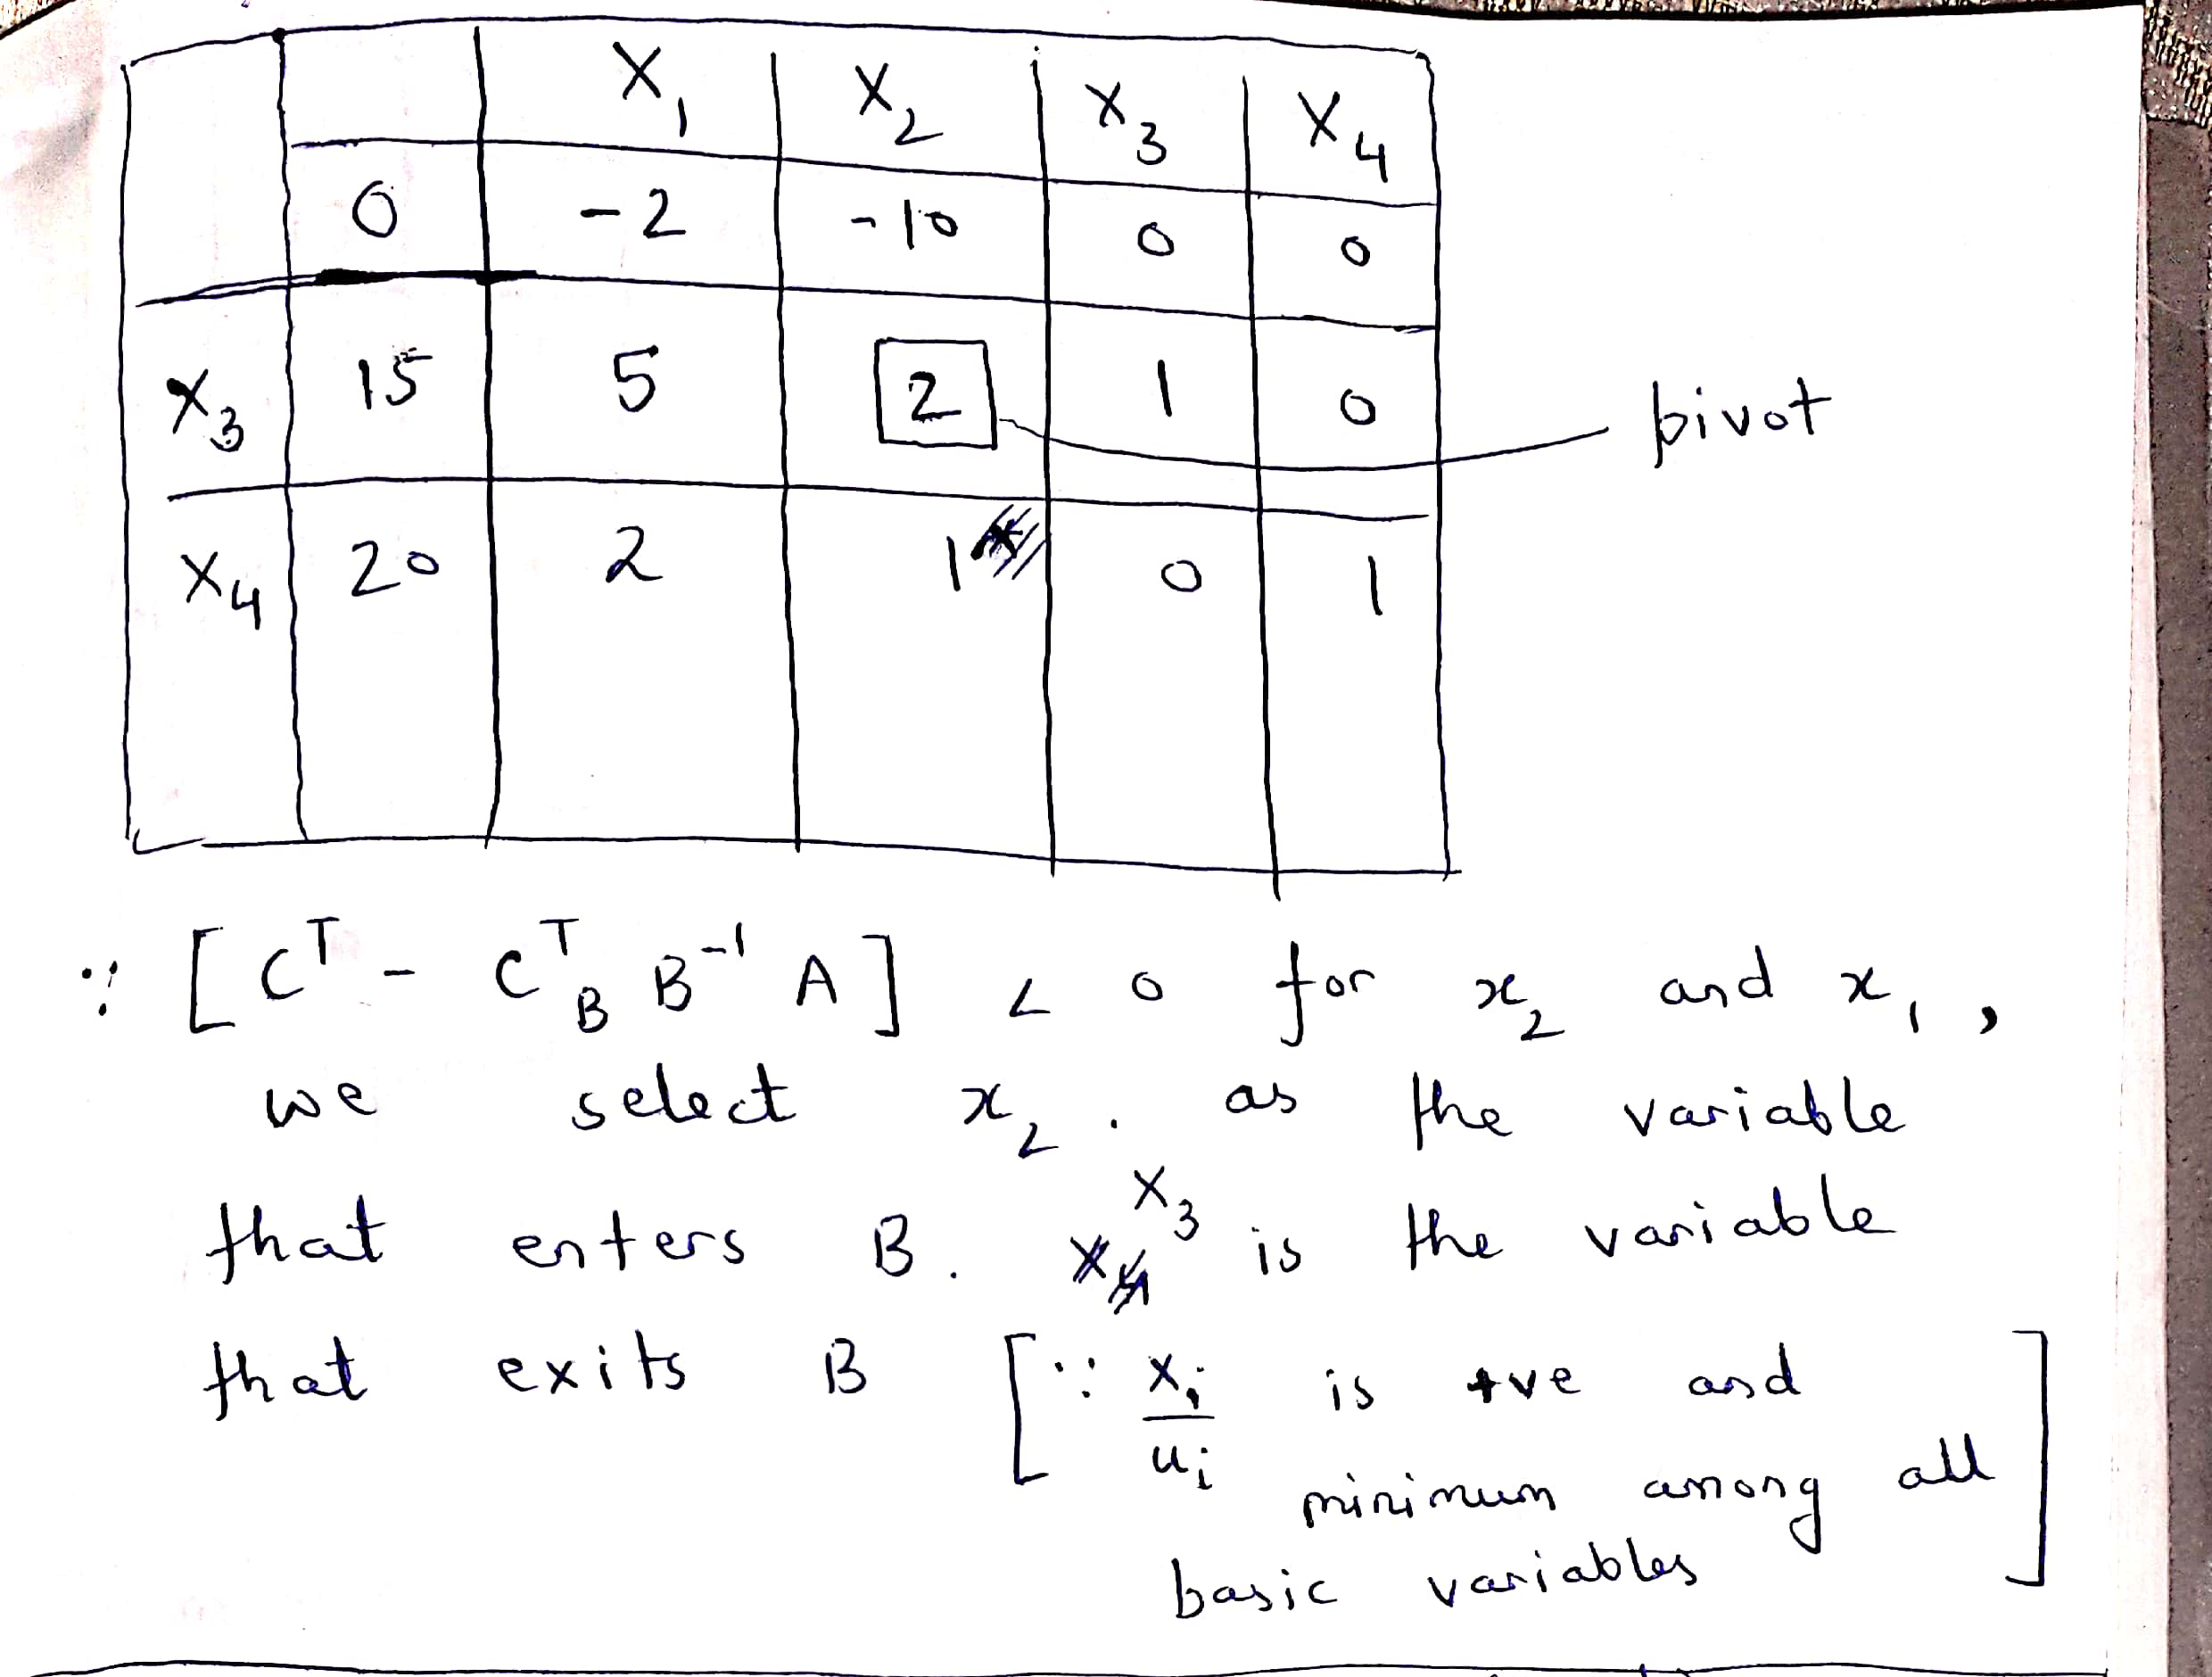 X₁ X₂ X₃ X₄
0 -2 -10 0 0
X₃ 15 5 2 1 0 pivot
X₄ 20 2 1 0 1
∵ [Cᵀ - Cᵀ_B B⁻¹ A] < 0 for x₂ and x₁,
we select x₂ . as the variable
that enters B. X₃ is the variable
that exits B [∵ Xᵢ/uᵢ is +ve and
minimum among all
basic variables]